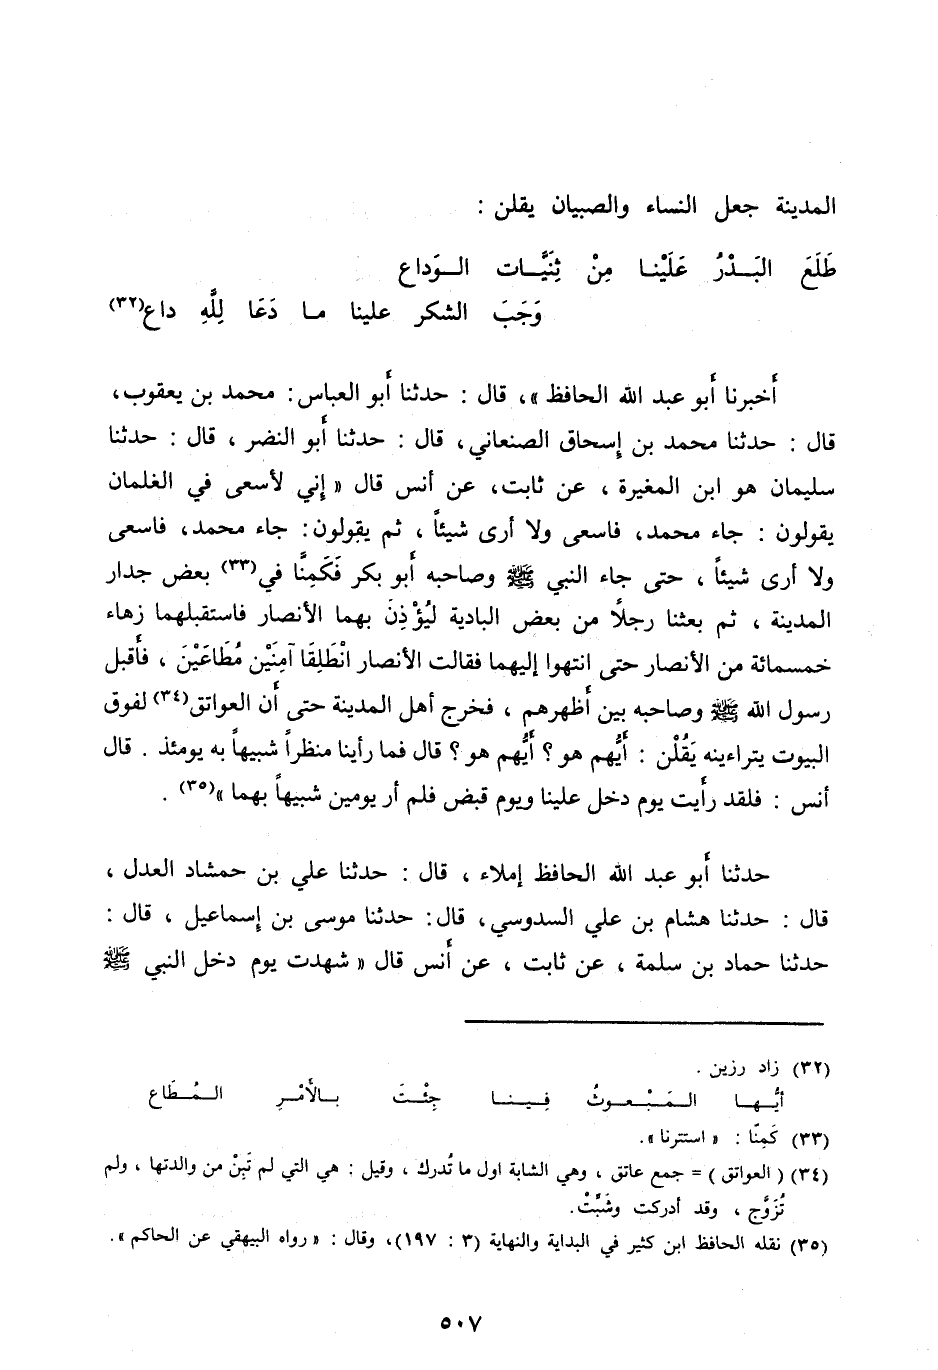 المدينة جعل النساء والصبيان يقلن :
طَلَعَ البَـدْرُ عَلَيْنـا مِنْ ثِنَيَّـات الـوَداع
وَجَبَ الشكر علينا مـا دَعَا لِلَّهِ داع(٣٢)
أخبرنا أبو عبد الله الحافظ »، قال : حدثنا أبو العباس: محمد بن يعقوب،
قال : حدثنا محمد بن إسحاق الصنعاني، قال : حدثنا أبو النضر ، قال : حدثنا
سليمان هو ابن المغيرة ، عن ثابت، عن أنس قال « إني لأسعى في الغلمان
يقولون : جاء محمد، فاسعى ولا أرى شيئاً ، ثم يقولون: جاء محمد، فاسعى
ولا أرى شيئاً ، حتى جاء النبي ﷺ وصاحبه أبو بكر فَكَمِنَّا في(٣٣) بعض جدار
المدينة ، ثم بعثنا رجلاً من بعض البادية ليُؤْذِنَ بهما الأنصار فاستقبلهما زهاء
خمسمائة من الأنصار حتى انتهوا إليهما فقالت الأنصار انْطَلِقَا آمِنَيْن مُطَاعَيْنَ ، فأقبل
رسول الله ﷺ وصاحبه بين أظهرهم ، فخرج أهل المدينة حتى أن العواتق(٣٤) لفوق
البيوت يتراءينه يَقُلْن : أيُّهم هو ؟ أيُّهم هو ؟ قال فما رأينا منظراً شبيهاً به يومئذ . قال
أنس : فلقد رأيت يوم دخل علينا ويوم قبض فلم أر يومين شبيهاً بهما »(٣٥) .
حدثنا أبو عبد الله الحافظ إملاء ، قال : حدثنا علي بن حمشاد العدل ،
قال : حدثنا هشام بن علي السدوسي، قال: حدثنا موسى بن إسماعيل ، قال :
حدثنا حماد بن سلمة ، عن ثابت ، عن أنس قال « شهدت يوم دخل النبي ﷺ
(٣٢) زاد رزين .
أيُّهـا المَـبْـعـوثُ فِـيـنـا جِئْـتَ بـالأَمْـرِ الـمُـطَاع
(٣٣) كَمِنّا : « استترنا ».
(٣٤) ( العواتق ) = جمع عاتق ، وهي الشابة اول ما تُدرك ، وقيل : هي التي لم تَبِنْ من والدتها ، ولم
تُزوَّج ، وقد أدركت وشَبَّتْ.
(٣٥) نقله الحافظ ابن كثير في البداية والنهاية (٣ : ١٩٧)، وقال : « رواه البيهقي عن الحاكم ».
٥٠٧